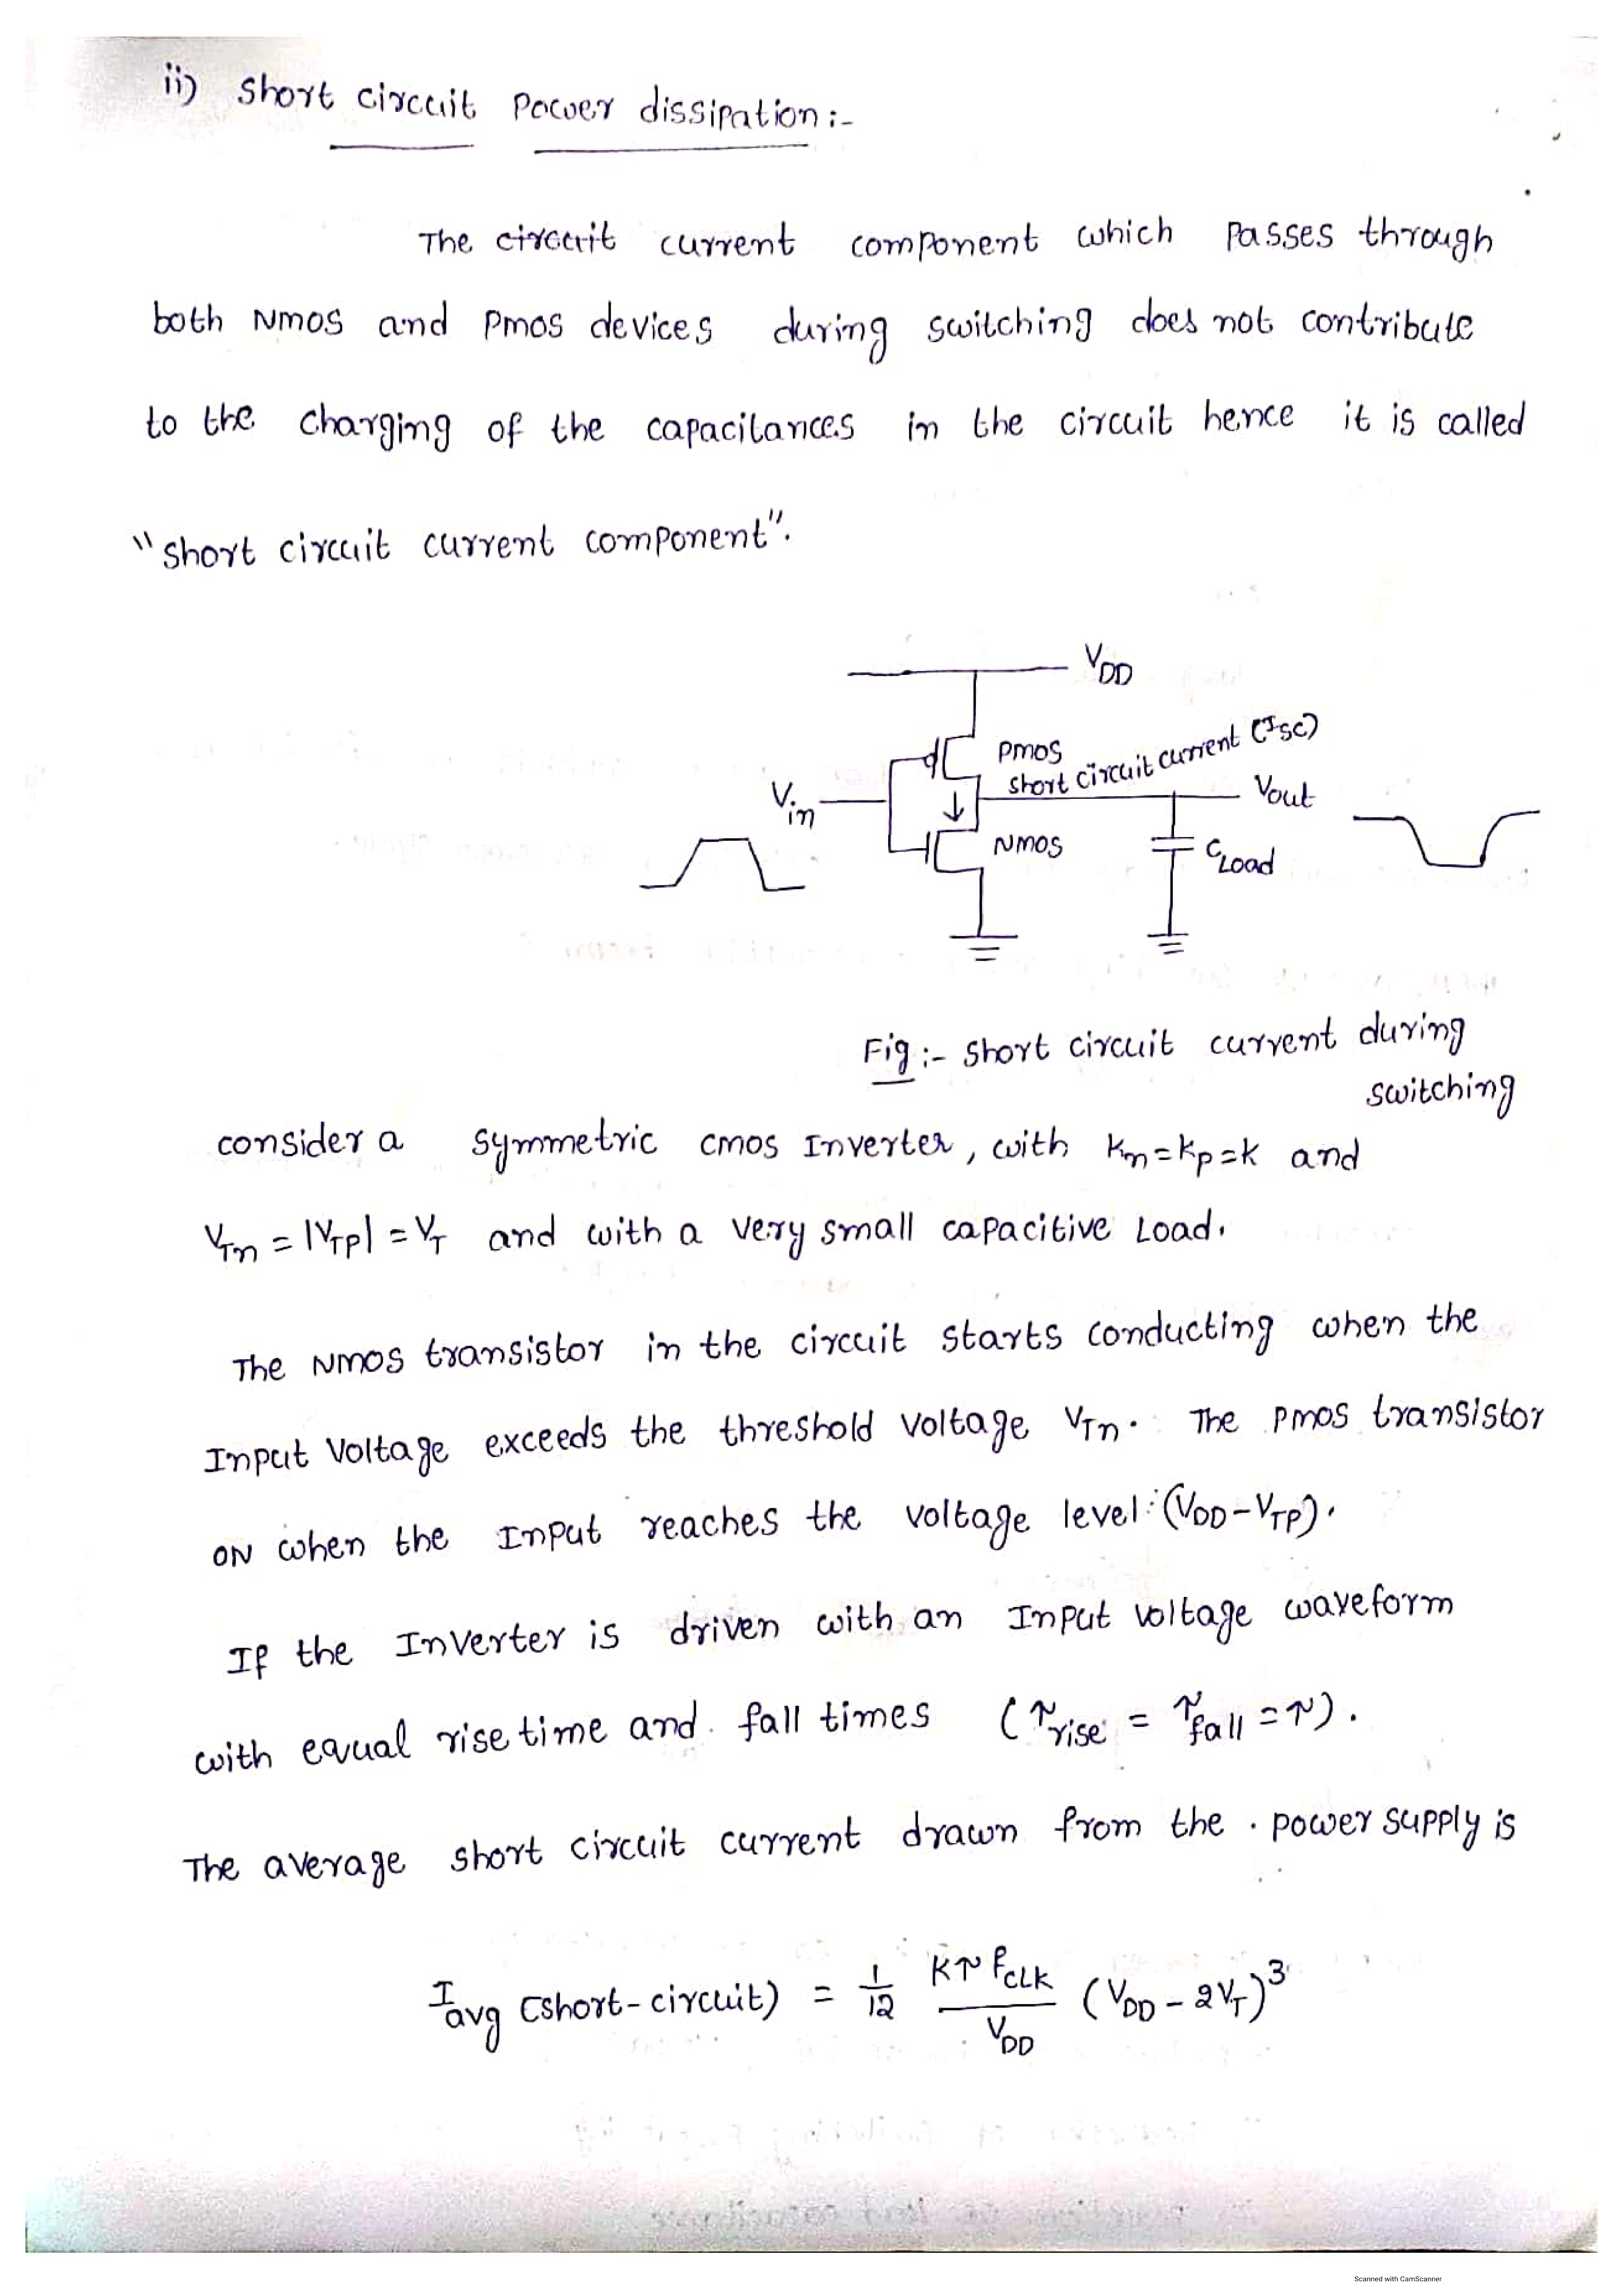 ii) Short circuit Power dissipation :-
The circuit current component which Passes through
both NMOS and PMOS devices during switching does not contribute
to the charging of the capacitances in the circuit hence it is called
"short circuit current component".
VDD
PMOS
short circuit current (Isc)
Vin
Vout
NMOS
CLoad
Fig :- short circuit current during
switching
consider a symmetric CMOS Inverter, with kn=kp=k and
VTn = |VTP| = VT and with a very small capacitive Load.
The NMOS transistor in the circuit starts conducting when the
Input Voltage exceeds the threshold Voltage VTn. The PMOS transistor
ON when the Input reaches the voltage level (VDD-VTP).
If the Inverter is driven with an Input voltage waveform
with equal rise time and fall times (τrise = τfall = τ).
The average short circuit current drawn from the power supply is
Iavg (short-circuit) = 1/12 Kτ fCLK/VDD (VDD - 2VT)³
Scanned with CamScanner